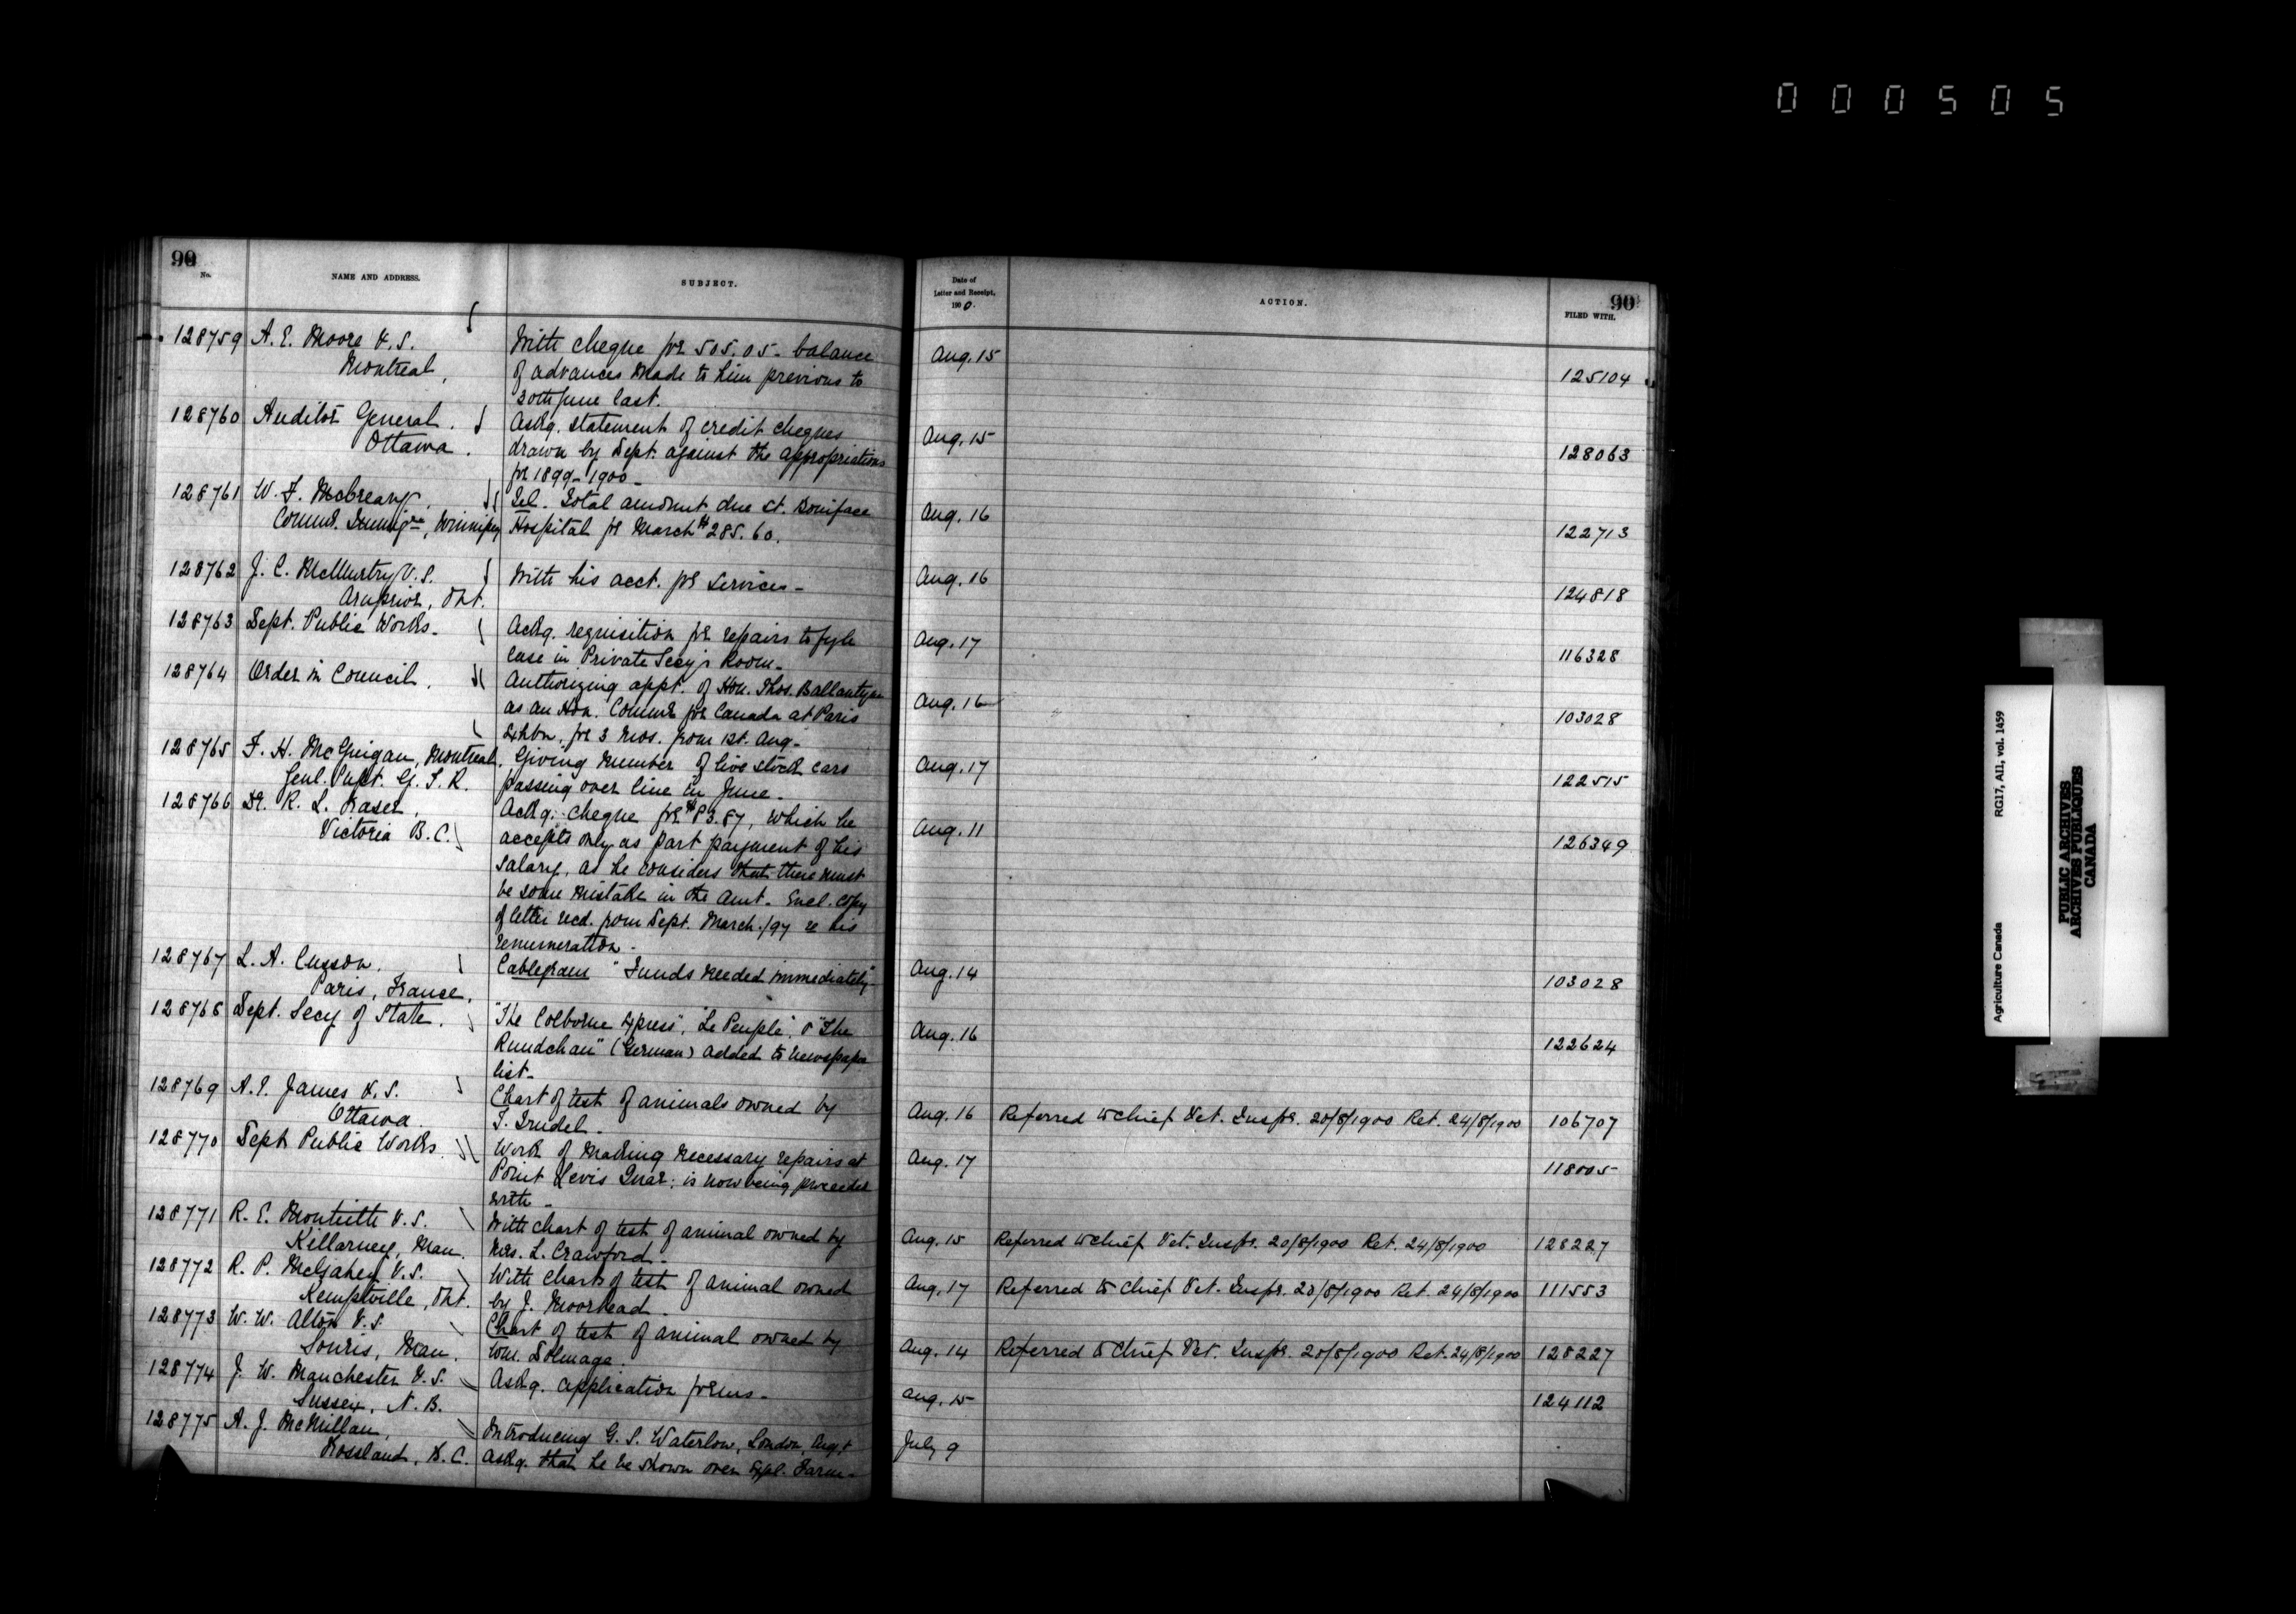 000505
90
No.
NAME AND ADDRESS.
SUBJECT.
128759 A. E. Moore V.S.
Montreal,
With cheque for 505.05 - balance
of advances made to him previous to
30th June last.
128760 Auditor General.
Ottawa.
Askg. statement of credit cheques
drawn by Dept. against the appropriations
for 1899-1900-
128761 W. F. McCreary,
Commr. Immign, Winnipeg
Tel. Total amount due St. Boniface
Hospital for March $285.60.
128762 J. C. McMurtry V.S.
Arnprior, Ont.
With his acct. for services-
128763 Dept. Public Works-
Ackg. requisition for repairs to fyle
case in Private Secy's Room-
128764 Order in Council.
Authorizing appt. of Hon. Thos. Ballantyne
as an Hon. Commr for Canada at Paris
Exhbn, for 3 mos. from 1st. Aug-
128765 F. H. McGuigan, Montreal.
Genl. Supt. G. T. R.
Giving number of live stock cars
passing over line in June-
128766 Dr. R. L. Fraser,
Victoria B.C.
Ackg. cheque for $83.87, which he
accepts only as part payment of his
salary, as he considers that there must
be some mistake in the amt- Encl. copy
of letter recd. from Dept. March/97 re his
renumeration-
128767 L. A. Cusson.
Paris, France,
Cablegram "Funds needed immediately"
128768 Dept. Secy of State.
"The Colborne Express", "Le Peuple", & "The
Rundchau" (German) added to newspaper
list-
128769 A. E. James V.S.
Ottawa
Chart of test of animals owned by
T. Trudel-
128770 Dept Public Works.
Work of making necessary repairs at
Point Levis Quar: is now being proceeded
with-
128771 R. E. Monteith V.S.
Killarney, Man.
With chart of test of animal owned by
Mrs. L. Crawford-
128772 R. P. McGahey V.S.
Kemptville, Ont.
With chart of test of animal owned
by J. Moorhead.
128773 W. W. Alton V.S.
Souris, Man.
Chart of test of animal owned by
Wm. Dolmage.
128774 J. W. Manchester V.S.
Sussex, N.B.
Askg. application forms-
128775 A. J. McMillan,
Rossland, B.C.
Introducing G. S. Waterlow, London, Eng, &
askg. that he be shown over Expl. Farm-
Date of
Letter and Receipt,
1900.
ACTION.
90
FILED WITH.
Aug. 15
125104
Aug. 15
128063
Aug. 16
122713
Aug. 16
124818
Aug. 17
116328
Aug. 16
103028
Aug. 17
122515
Aug. 11
126349
Aug. 14
103028
Aug. 16
122624
Aug. 16 Referred to Chief Vet. Inspr. 20/8/1900 Ret. 24/8/1900 106707
Aug. 17
118005
Aug. 15 Referred to Chief Vet. Inspr. 20/8/1900 Ret. 24/8/1900 128227
Aug. 17 Referred to Chief Vet. Inspr. 20/8/1900 Ret. 24/8/1900 111553
Aug. 14 Referred to Chief Vet. Inspr. 20/8/1900 Ret. 24/8/1900 128227
Aug. 15
124112
July 9
Agriculture Canada
RG17, AII, vol. 1459
PUBLIC ARCHIVES
ARCHIVES PUBLIQUES
CANADA